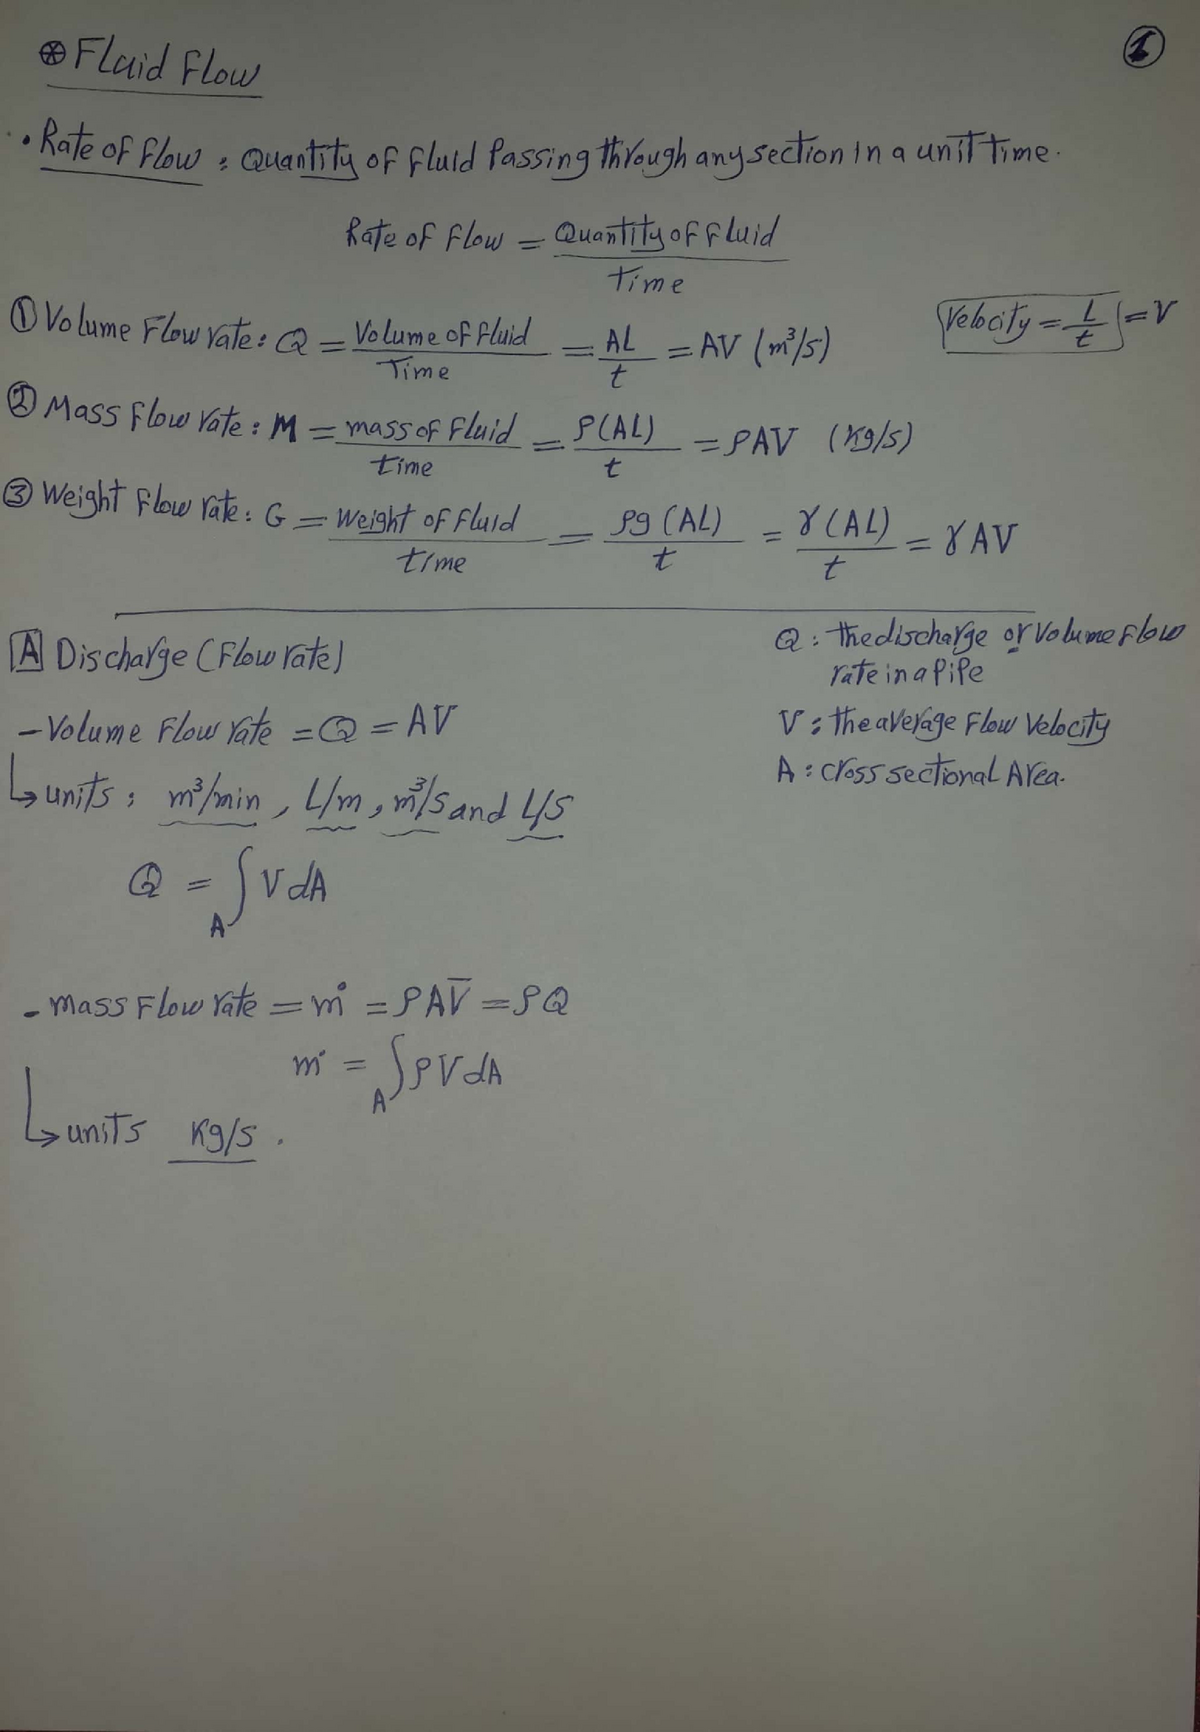 ⊛ Fluid Flow
1
• Rate of flow : Quantity of fluid Passing through any section in a unit time.
Rate of Flow = Quantity of Fluid / Time
① Volume Flow rate: Q = Volume of fluid / Time = AL / t = AV (m³/s)
Velocity = L / t = V
② Mass flow rate: M = mass of fluid / time = ρ(AL) / t = ρAV (kg/s)
③ Weight flow rate: G = Weight of fluid / time = ρg (AL) / t = γ(AL) / t = γAV
A Discharge (Flow rate)
Q : the discharge or Volume Flow
rate in a pipe
- Volume Flow rate = Q = AV
V : the average Flow Velocity
A : cross sectional Area.
↳ units : m³/min , L/m , m³/s and L/s
Q = ∫A V dA
- mass Flow rate = ṁ = ρAV̅ = ρQ
ṁ = ∫A ρV dA
↳ units kg/s .